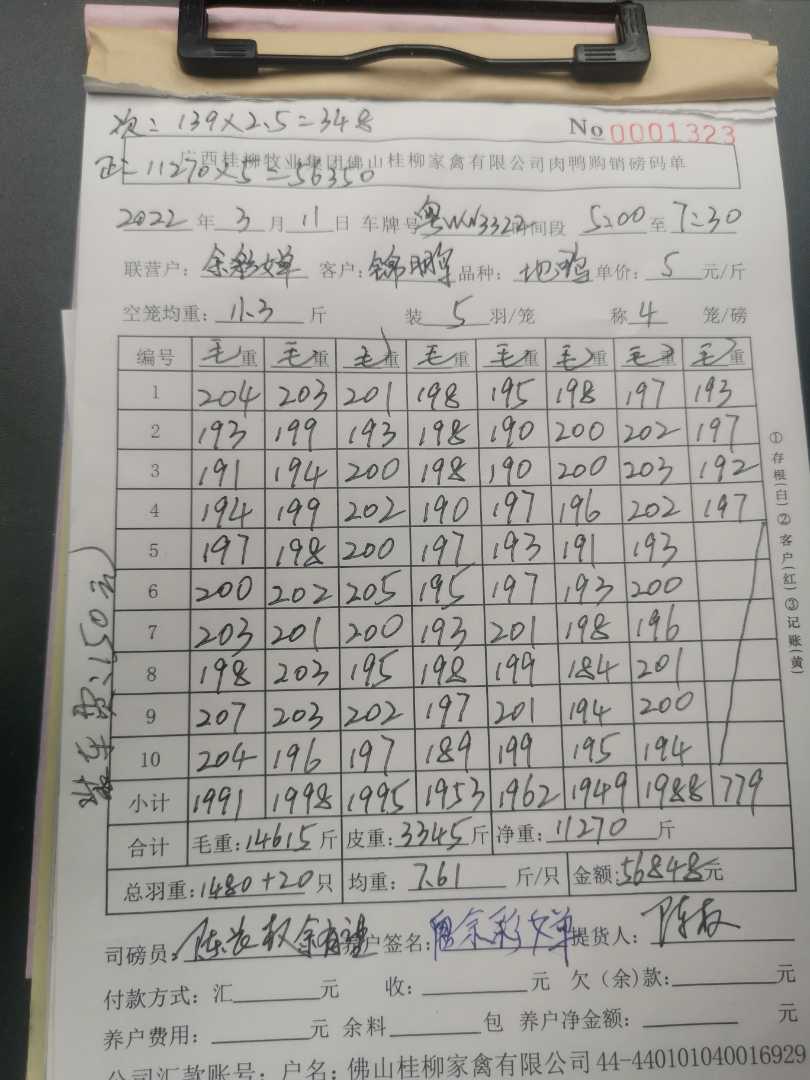 次:139×2.5=348
No 0001323
广西桂柳牧业集团佛山桂柳家禽有限公司肉鸭购销磅码单
正:11270×5=56350
2022年3月11日 车牌号 时间段 5:00至7:30
联营户:余彩婵 客户: 品种: 地鸡 单价:5元/斤
空笼均重:11.3斤 装5羽/笼 称4笼/磅
编号 毛重 毛重 毛重 毛重 毛重 毛重 毛重 毛重
1 204 203 201 198 195 198 197 193
2 193 199 193 198 190 200 202 197
3 191 194 200 198 190 200 203 192
4 194 199 202 190 197 196 202 197
5 197 198 200 197 193 191 193
6 200 202 205 195 197 193 200
7 203 201 200 193 201 198 196
8 198 203 195 198 199 184 201
9 207 203 202 197 201 194 200
10 204 196 197 189 199 195 194
小计 1991 1998 1995 1953 1962 1949 1988 779
合计 毛重:14615斤 皮重:3345斤 净重:11270斤
总羽重:1480+20只 均重:7.61斤/只 金额:56848元
司磅员: 养户签名:余彩婵 提货人:陈权
付款方式:汇 元 收: 元 欠(余)款: 元
养户费用: 元 余料 包 养户净金额: 元
公司汇款账号:户名:佛山桂柳家禽有限公司 44-440101040016929
①存根(白)②客户(红)③记账(黄)
装车费:150元